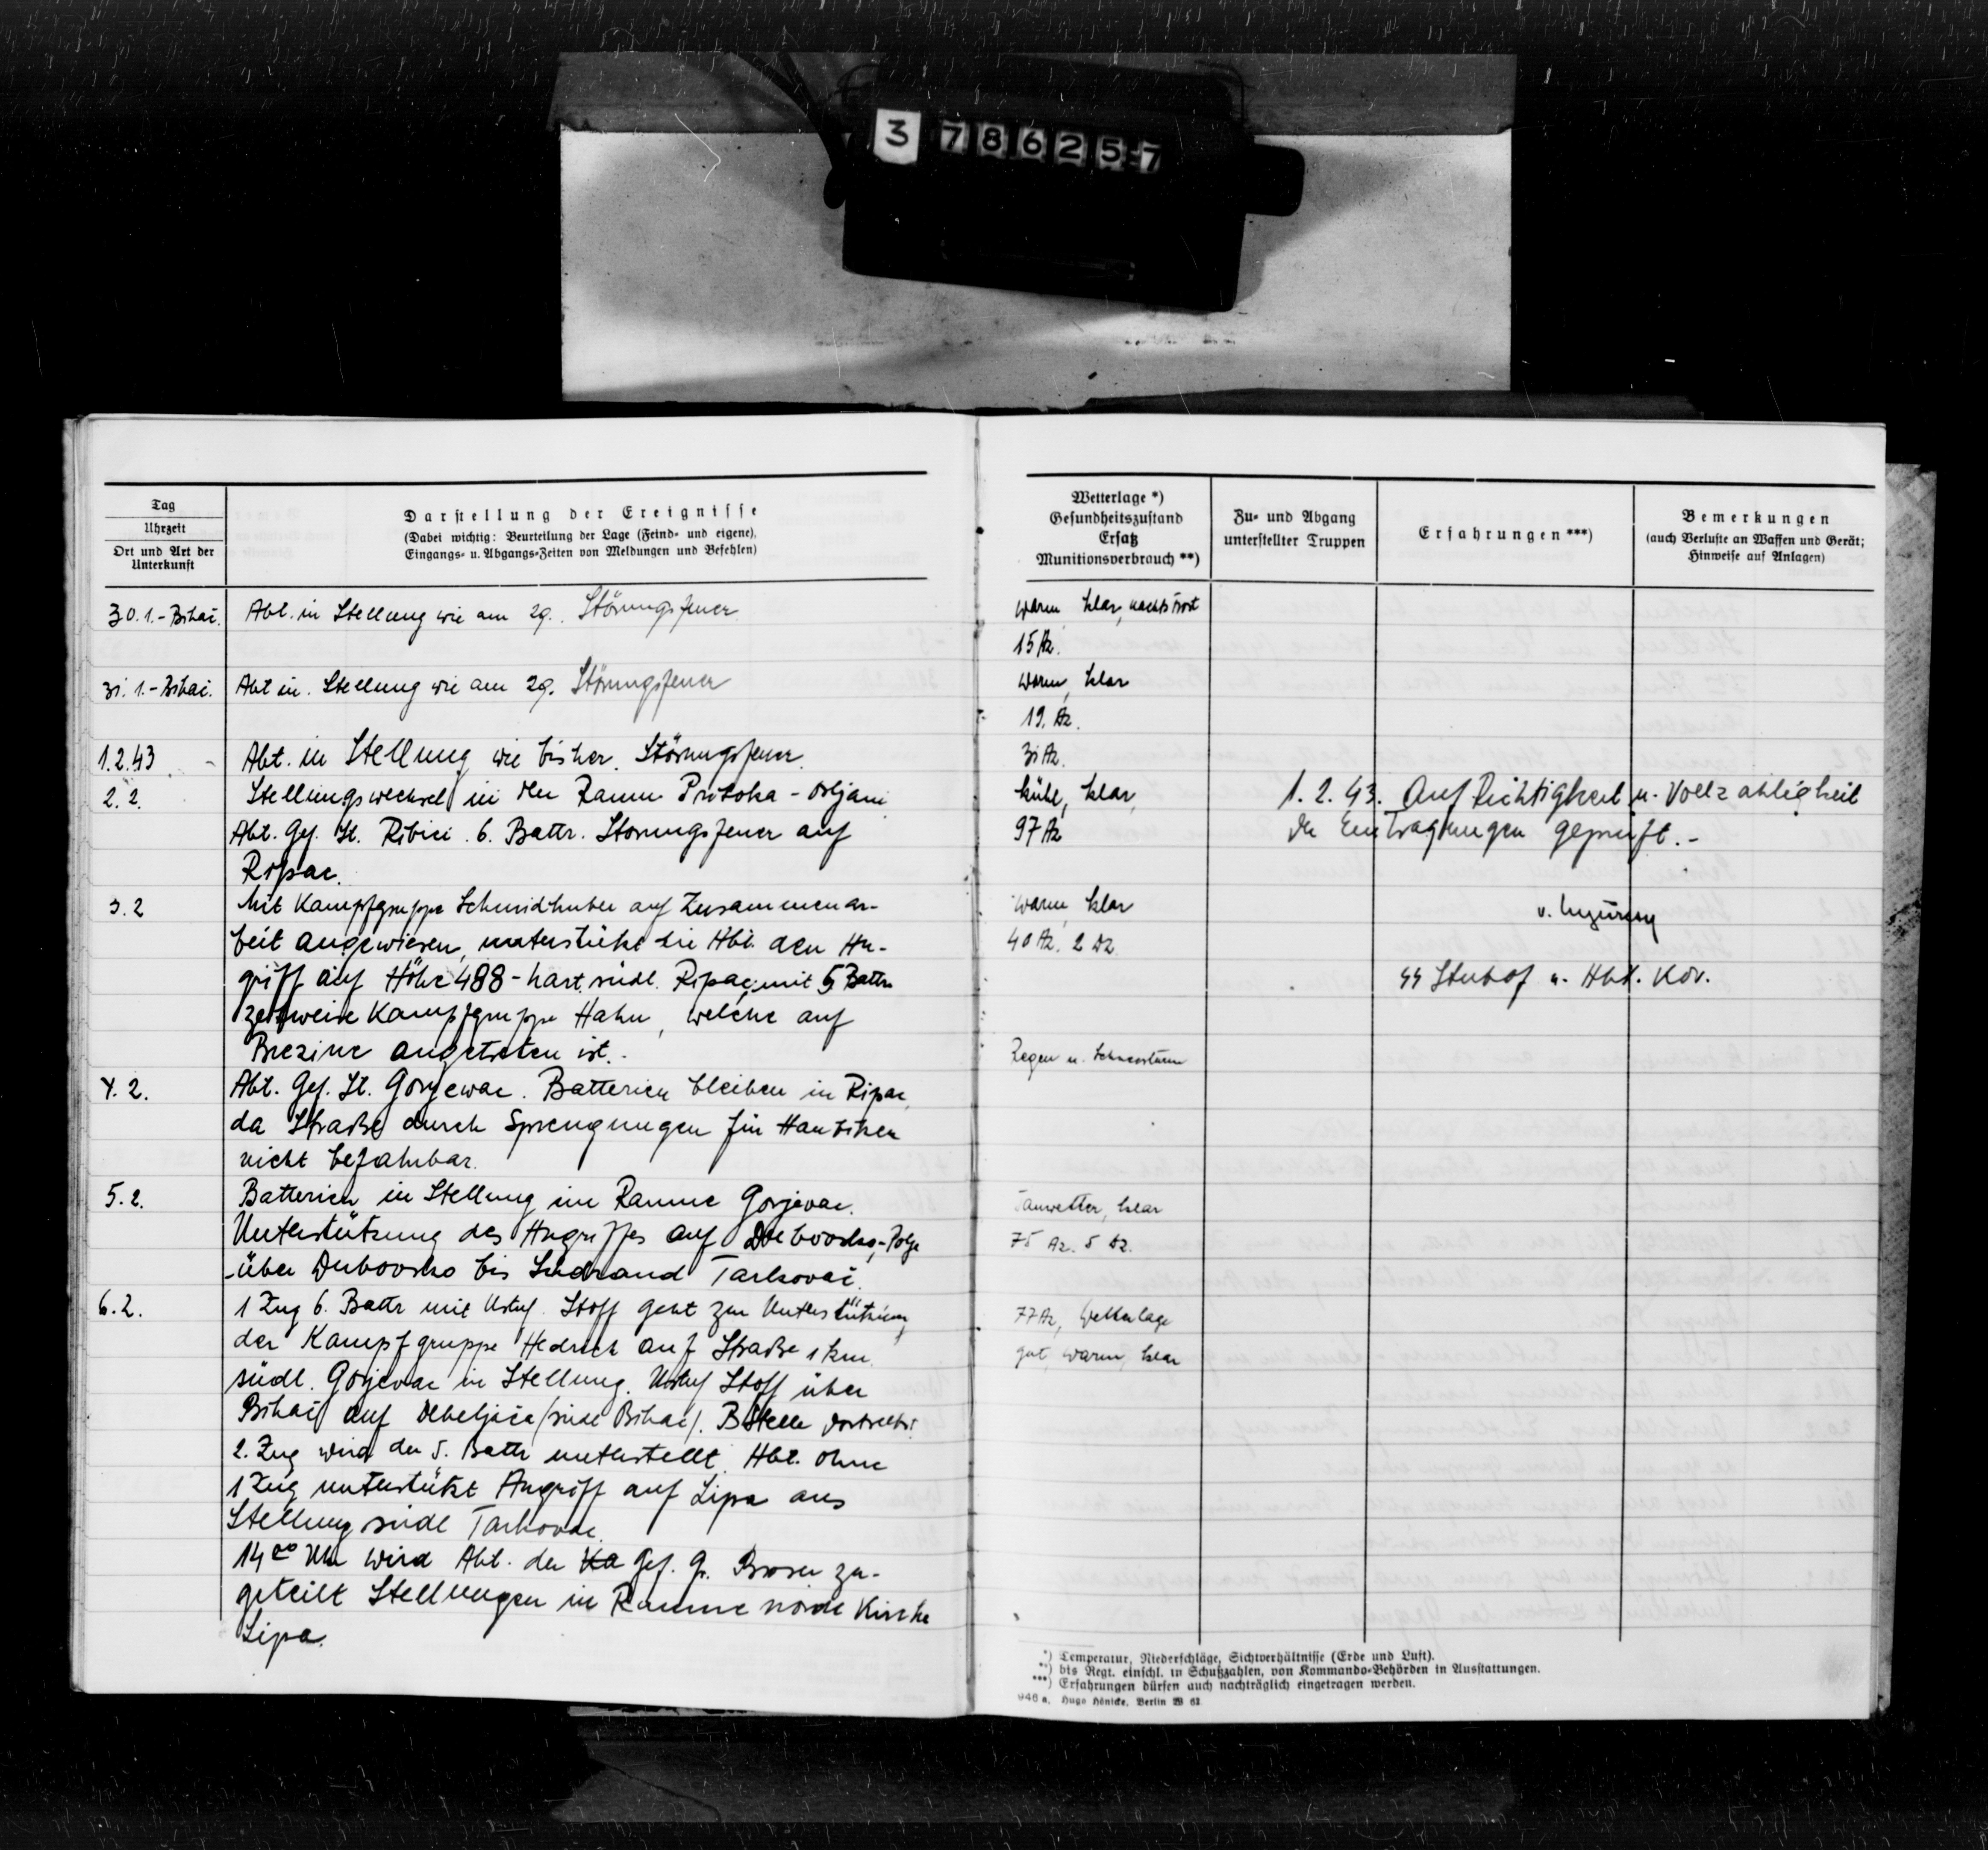 3 78625-7
Tag
Uhrzeit
Ort und Art der
Unterkunft
Darstellung der Ereignisse
(Dabei wichtig: Beurteilung der Lage (Feind- und eigene),
Eingangs- u. Abgangs-Zeiten von Meldungen und Befehlen)
30.1.-Bihać. Abt. in Stellung wie am 29. Störungsfeuer
31.1.-Bihać. Abt in Stellung wie am 29. Störungsfeuer
1.2.43 - Abt. in Stellung wie bisher. Störungsfeuer.
2.2. Stellungswechsel in den Raum Pritoka - Orljani
Abt. Gef. St. Ribici. 6. Battr. Störungsfeuer auf
Ripac.
3.2 Mit Kampfgruppe Schmidhuber auf Zusammenar-
beit angewiesen, unterstützt die Abt. den An-
griff auf Höhe 488 - hart südl. Ripac, mit 5 Battr.
zeitweise Kampfgruppe Hahn, welche auf
Brezine angetreten ist.
4.2. Abt. Gef. St. Gorjewac. Batterien bleiben in Ripac,
da Straße durch Sprengungen für Haubitzen
nicht befahrbar.
5.2. Batterien in Stellung im Raume Gorjevac.
Unterstützung des Angriffes auf Dubovsko,
über Dubovsko bis Südrand Tarkovać.
6.2. 1 Zug 6. Battr mit Ustuf. Stoff geht zur Unterstützung
der Kampfgruppe Hedrich auf Straße 1 km
südl. Gorjevac in Stellung. Ustuf Stoff über
Bihać auf Debeljača (südl Bihać). B Stelle dortselbst.
2. Zug wird der 5. Battr unterstellt. Abt. ohne
1 Zug unterstützt Angriff auf Lipa aus
Stellung südl Tarkovac.
14 00 Uhr wird Abt. der Ka Gef. Gr. zu-
geteilt Stellungen im Raume nördl Kirche
Lipa.
Wetterlage *)
Gesundheitszustand
Ersatz
Munitionsverbrauch **)
Zu- und Abgang
unterstellter Truppen
Erfahrungen ***)
Bemerkungen
(auch Verluste an Waffen und Gerät;
Hinweise auf Anlagen)
warm klar, nachts Frost
15 Az.
warm, klar
19. Az.
31 Az.
kühl, klar,
97 Az
1.2.43. Auf Richtigkeit u. Vollzähligkeit
der Eintragungen geprüft. -
warm, klar
40 Az. 2 Dz
SS Stubaf u. Abt. Kdr.
Regen u. Schneesturm
Tauwetter, klar
75 Az. 5 Dz.
77 Az, Wetterlage
gut warm, klar
*) Temperatur, Niederschläge, Sichtverhältnisse (Erde und Luft).
**) bis Regt. einschl. in Schußzahlen, von Kommando-Behörden in Ausstattungen.
***) Erfahrungen dürfen auch nachträglich eingetragen werden.
946 a. Hugo Hönicke, Berlin W 62